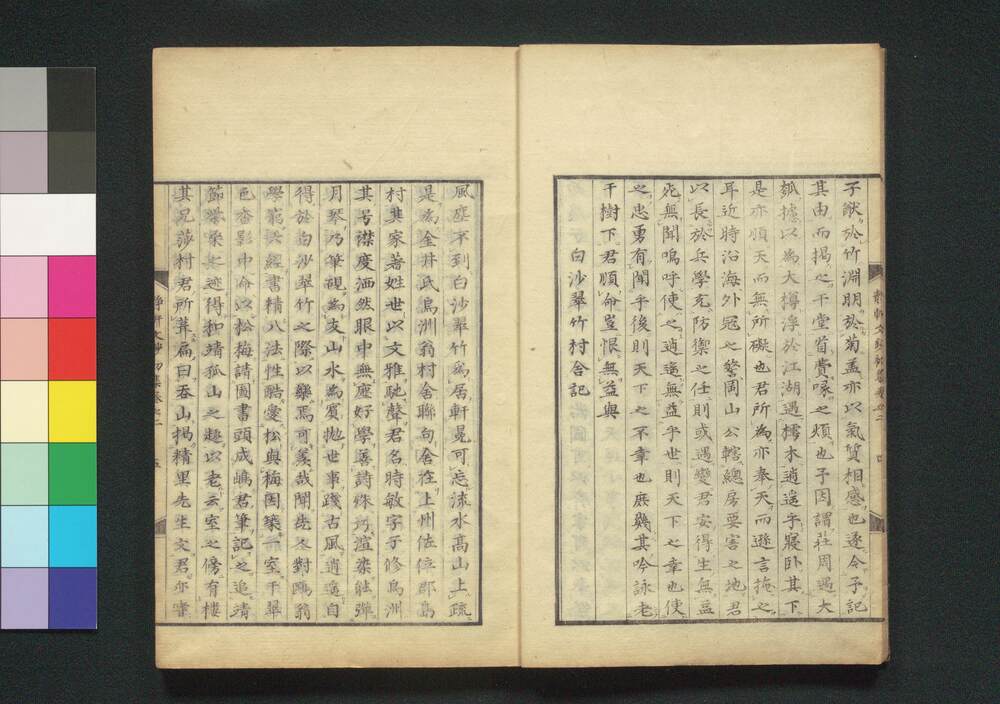 子猷於竹淵明於菊孟亦以氣質相感也遂令子記
其由而揭之干堂省賞啄之煩也子因謂莊周遇大
瓠攄以為大樽浮於江湖遇樗木逍遙乎寢卧其下
是亦順天而無所礙也君所為亦奉天而遜言掩之
耳近時沿海外冠之警岡山公轄總房要害之地君
以長於兵學充防禦之任則或遇變君安得生無益
死無聞嗚呼使之逍遥無益乎世則天下之幸也使
之忠勇有聞乎後則天下之不幸也庶幾其吟詠老
于樹下君順命豈恨無益與
白沙翠竹村舍記
風塵不到白沙翠竹為居軒冕可忘流水高山上疏
是為金井氏鳥洲翁村舍聯句舍在上州佐位郡島
村其家著姓世以文雅馳聲君名時敏字子修鳥洲
其号襟度洒然眼中無塵好學善詩殊巧渲染能彈
月琴乃筆硯為友山水為賓抛世事踐古風逍遥自
得於白沙翠竹之際以樂焉可羨哉聞先人對鷗翁
學兵經書精八法性酷愛松與梅因築一室干翠
色杳影中命以松梅請圖書頭成嶋君筆記之追靖
節榮桑之迹得和靖孤山之趣以老云室之傍有樓
其兄莎村君所葺扁曰吞山揭精里先生文君亦嘗